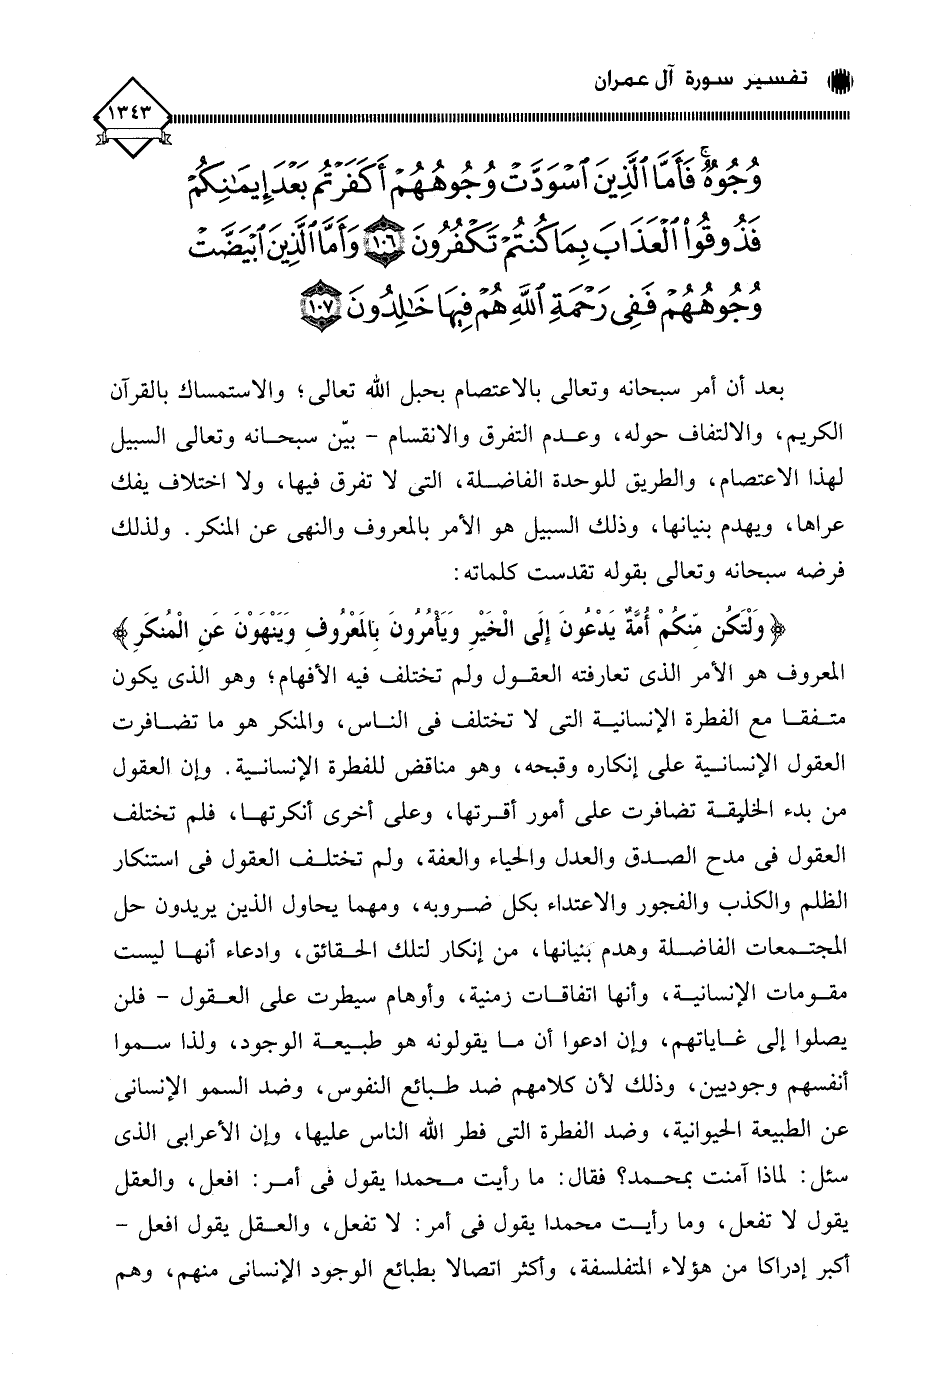 تفسير سورة آل عمران
١٣٤٣
وُجُوهٌ ۚ فَأَمَّا ٱلَّذِينَ ٱسْوَدَّتْ وُجُوهُهُمْ أَكَفَرْتُم بَعْدَ إِيمَٰنِكُمْ
فَذُوقُوا۟ ٱلْعَذَابَ بِمَا كُنتُمْ تَكْفُرُونَ ١٠٦ وَأَمَّا ٱلَّذِينَ ٱبْيَضَّتْ
وُجُوهُهُمْ فَفِى رَحْمَةِ ٱللَّهِ هُمْ فِيهَا خَٰلِدُونَ ١٠٧
بعد أن أمر سبحانه وتعالى بالاعتصام بحبل الله تعالى؛ والاستمساك بالقرآن
الكريم، والالتفاف حوله، وعدم التفرق والانقسام - بيّن سبحانه وتعالى السبيل
لهذا الاعتصام، والطريق للوحدة الفاضلة، التى لا تفرق فيها، ولا اختلاف يفك
عراها، ويهدم بنيانها، وذلك السبيل هو الأمر بالمعروف والنهى عن المنكر. ولذلك
فرضه سبحانه وتعالى بقوله تقدست كلماته:
﴿وَلْتَكُن مِّنكُمْ أُمَّةٌ يَدْعُونَ إِلَى الْخَيْرِ وَيَأْمُرُونَ بِالْمَعْرُوفِ وَيَنْهَوْنَ عَنِ الْمُنكَرِ﴾
المعروف هو الأمر الذى تعارفته العقول ولم تختلف فيه الأفهام؛ وهو الذى يكون
متفقا مع الفطرة الإنسانية التى لا تختلف فى الناس، والمنكر هو ما تضافرت
العقول الإنسانية على إنكاره وقبحه، وهو مناقض للفطرة الإنسانية. وإن العقول
من بدء الخليقة تضافرت على أمور أقرتها، وعلى أخرى أنكرتها، فلم تختلف
العقول فى مدح الصدق والعدل والحياء والعفة، ولم تختلف العقول فى استنكار
الظلم والكذب والفجور والاعتداء بكل ضروبه، ومهما يحاول الذين يريدون حل
المجتمعات الفاضلة وهدم بنيانها، من إنكار لتلك الحقائق، وادعاء أنها ليست
مقومات الإنسانية، وأنها اتفاقات زمنية، وأوهام سيطرت على العقول - فلن
يصلوا إلى غاياتهم، وإن ادعوا أن ما يقولونه هو طبيعة الوجود، ولذا سموا
أنفسهم وجوديين، وذلك لأن كلامهم ضد طبائع النفوس، وضد السمو الإنسانى
عن الطبيعة الحيوانية، وضد الفطرة التى فطر الله الناس عليها، وإن الأعرابى الذى
سئل: لماذا آمنت بمحمد؟ فقال: ما رأيت محمدا يقول فى أمر: افعل، والعقل
يقول لا تفعل، وما رأيت محمدا يقول فى أمر: لا تفعل، والعقل يقول افعل -
أكبر إدراكا من هؤلاء المتفلسفة، وأكثر اتصالا بطبائع الوجود الإنسانى منهم، وهم